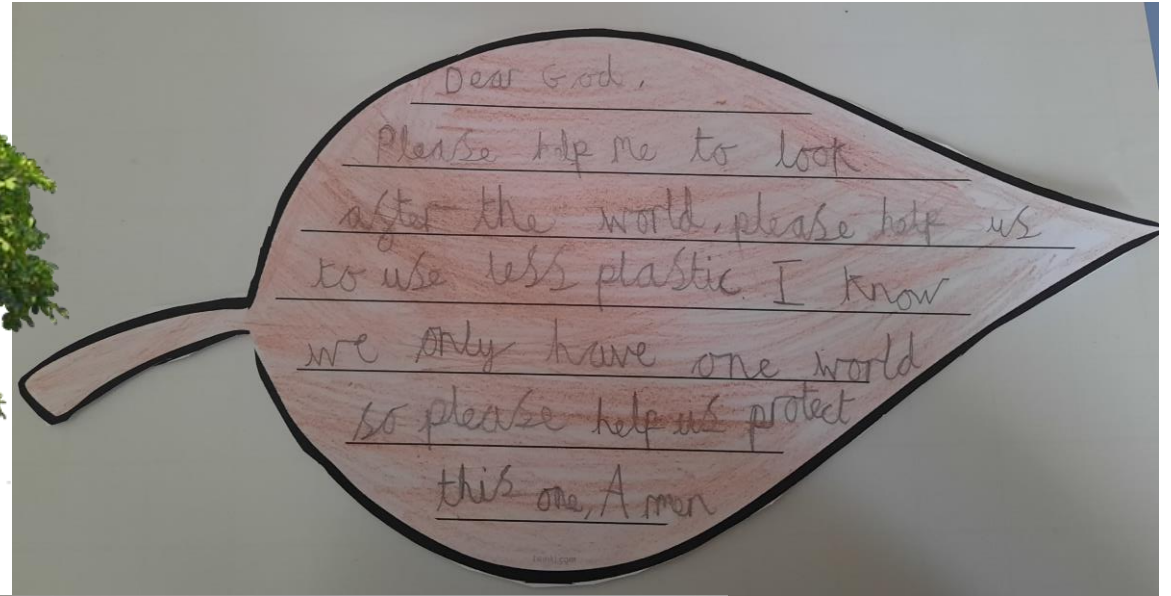 Dear God,
Please help me to look
after the world, please help us
to use less plastic. I know
we only have one world
so please help us protect
this one, A men